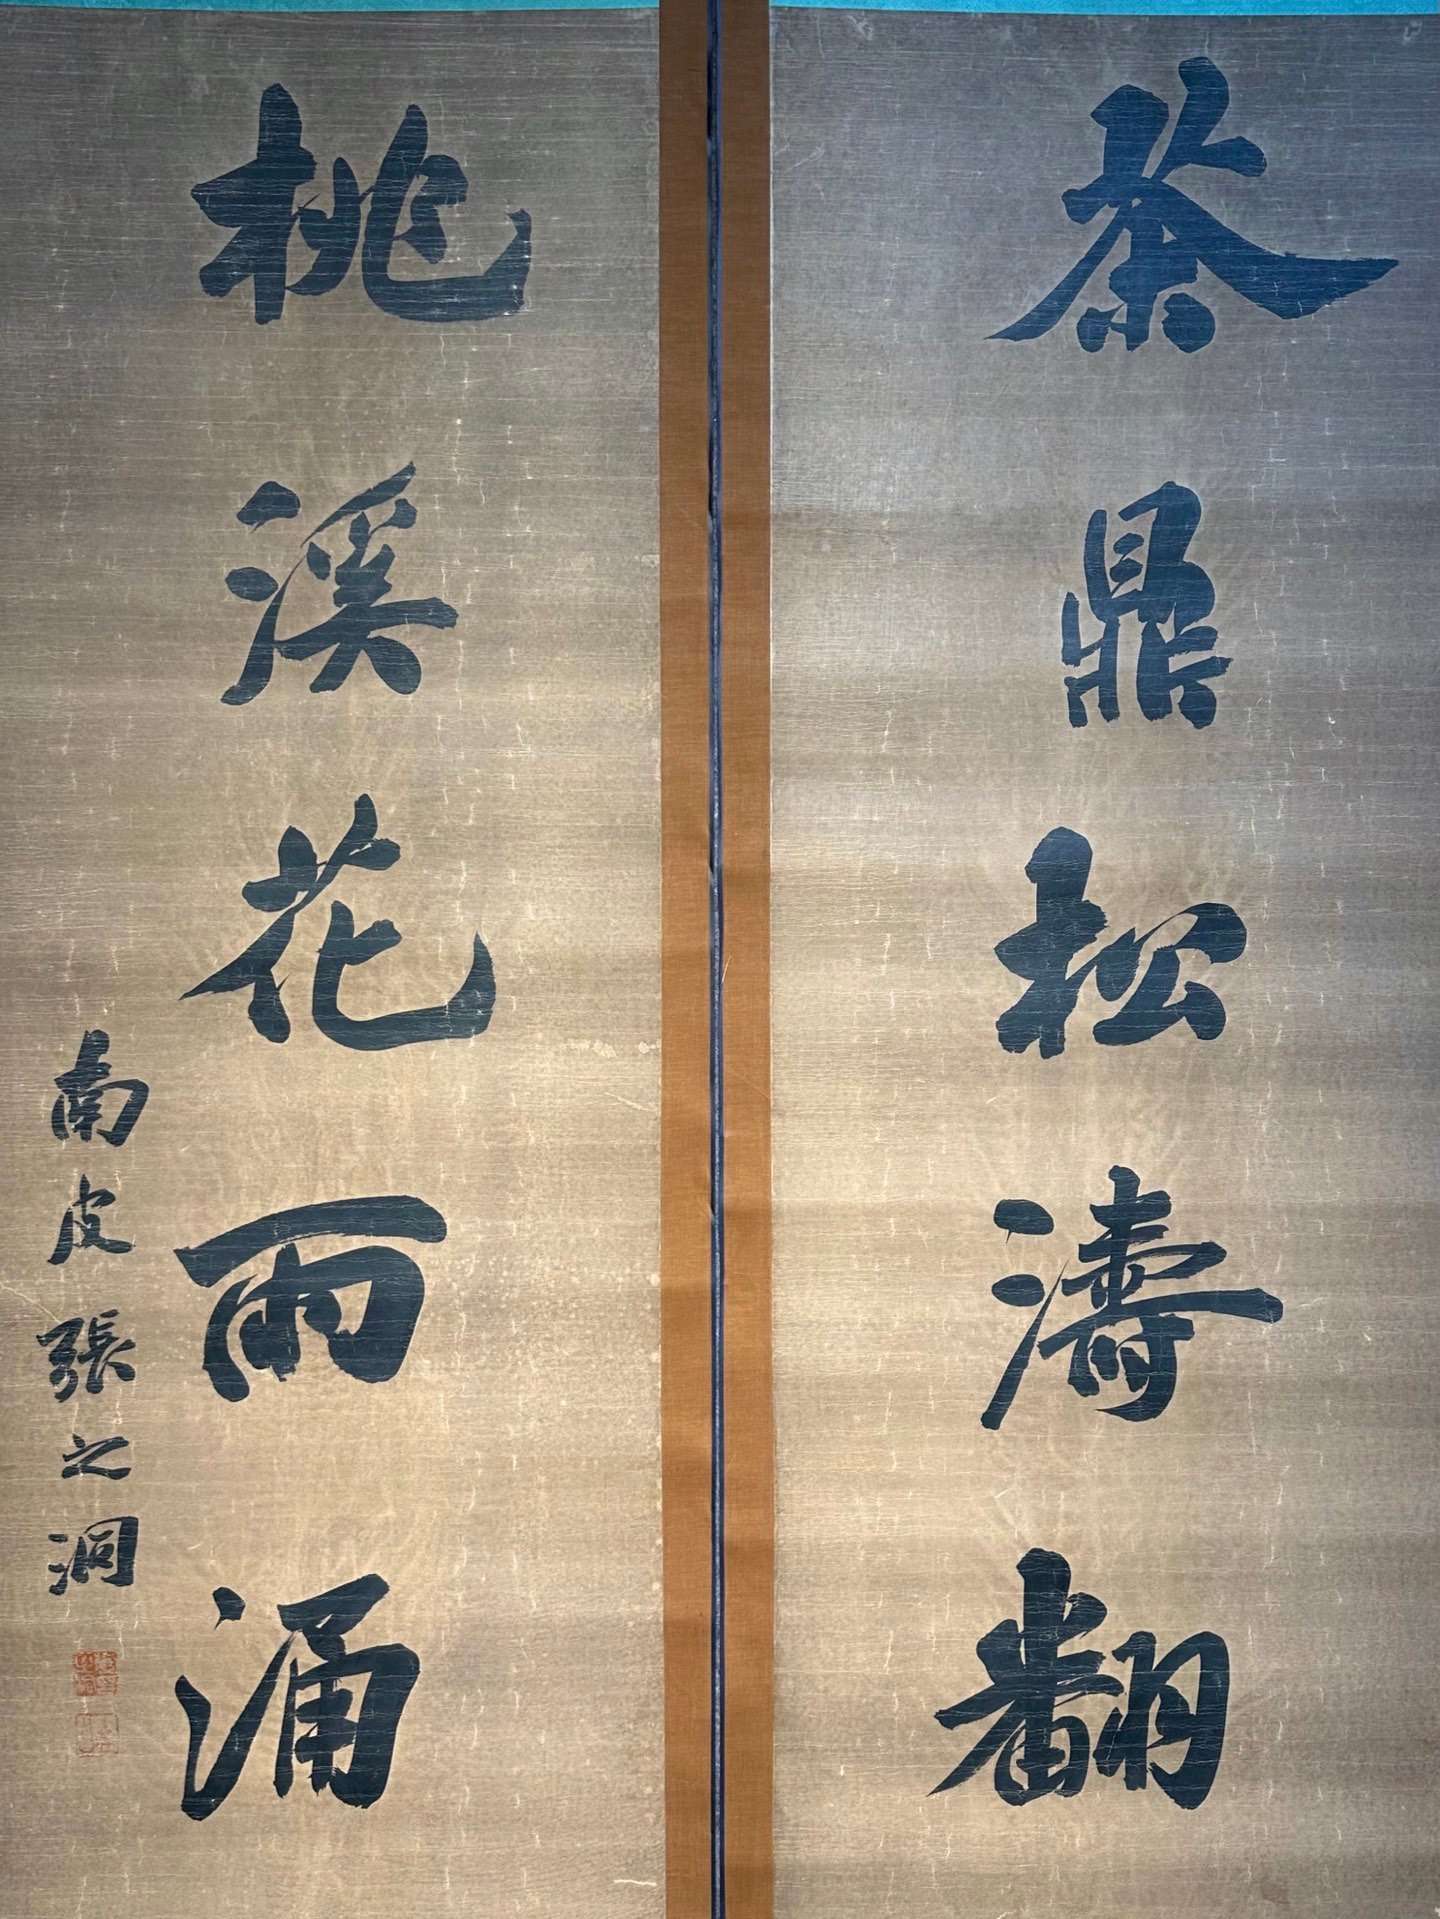 茶鼎松濤翻
桃溪花雨涌
南皮張之洞